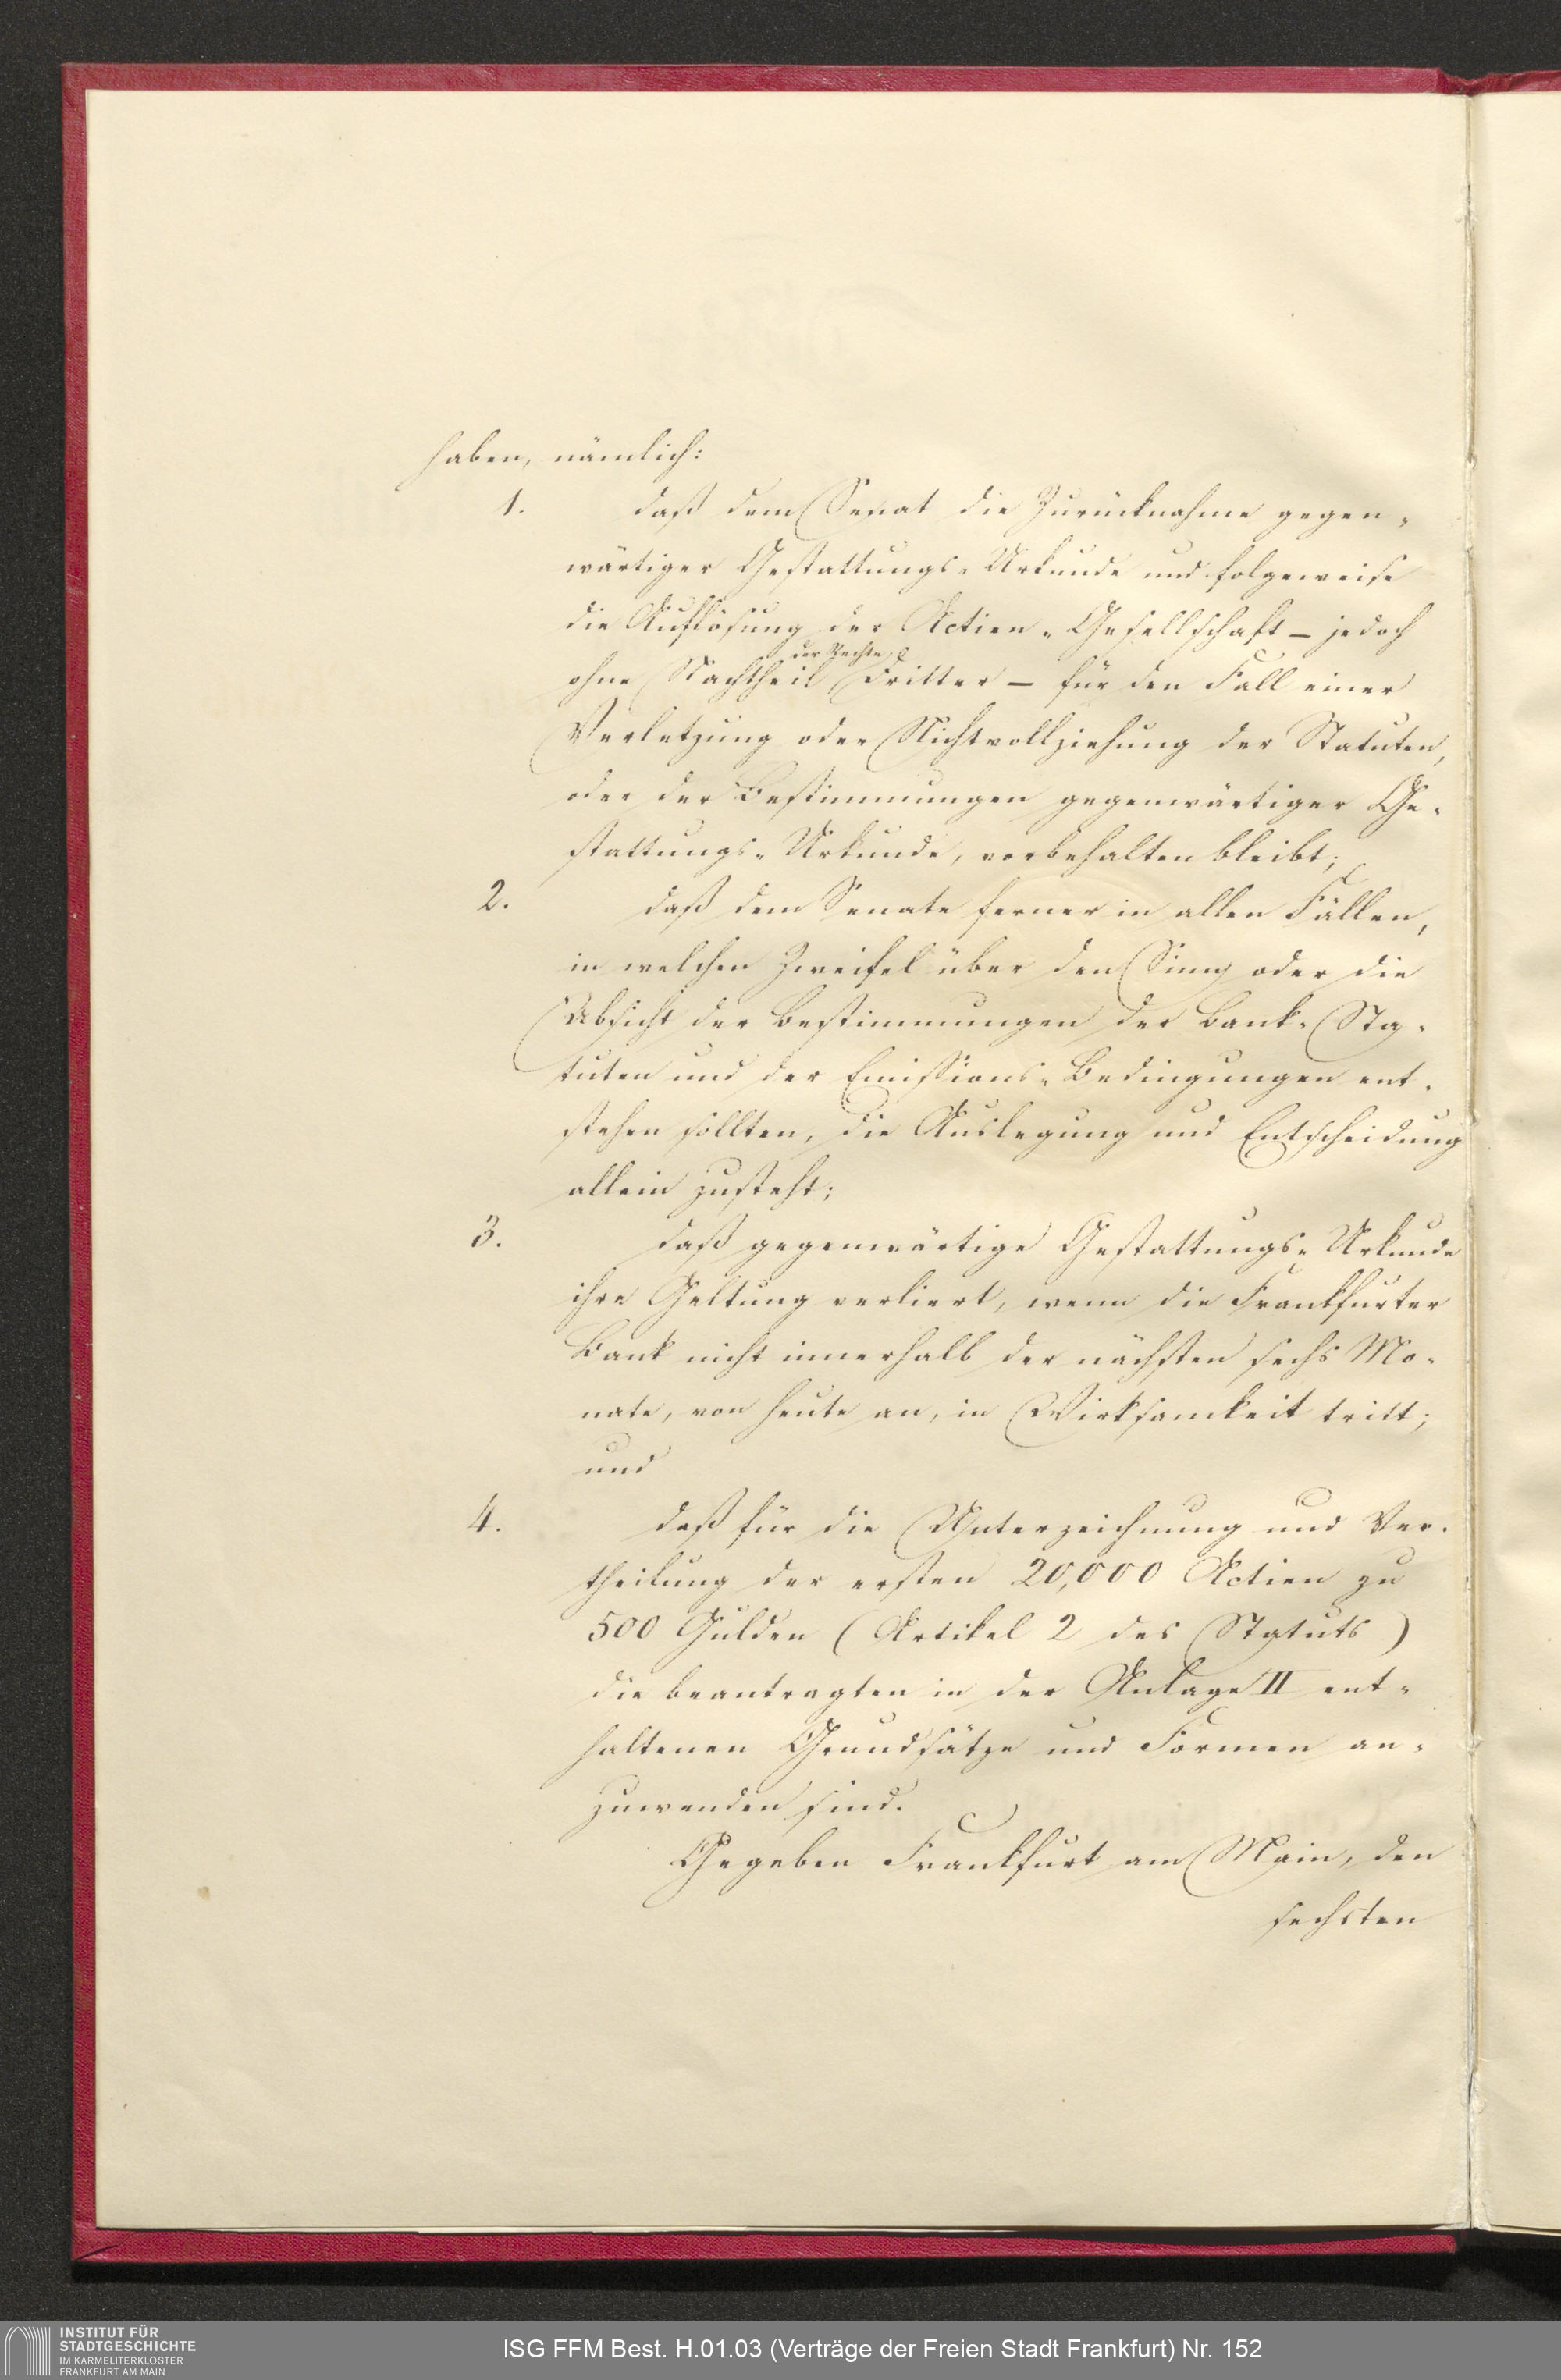 haben, nämlich:
1. daß dem Senat die Zurücknahme gegen-
wärtiger Gestattungs-Urkunde und folgeweise
die Auflösung der Actien-Gesellschaft – jedoch
der Rechte
ohne Nachtheil Dritter – für den Fall einer
Verletzung oder Nichtvollziehung der Statuten,
oder der Bestimmungen gegenwärtiger Ge-
stattungs-Urkunde, vorbehalten bleibt;
2. daß dem Senate ferner in allen Fällen,
in welchen Zweifel über den Sinn oder die
Absicht der Bestimmungen der Bank-Sta-
tuten und der Emissions-Bedingungen ent-
stehen sollten, die Auslegung und Entscheidung
allein zusteht;
3. daß gegenwärtige Gestattungs-Urkunde
ihre Geltung verliert, wenn die Frankfurter
Bank nicht innerhalb der nächsten sechs Mo-
nate, von heute an, in Wirksamkeit tritt;
und
4. daß für die Unterzeichnung und Ver-
theilung der ersten 20,000 Actien zu
500 Gulden (Artikel 2 des Statuts)
die beantragten in der Anlage II ent-
haltenen Grundsätze und Formen an-
zuwenden sind.
Gegeben Frankfurt am Main, den
sechsten
INSTITUT FÜR
STADTGESCHICHTE
IM KARMELITERKLOSTER
FRANKFURT AM MAIN
ISG FFM Best. H.01.03 (Verträge der Freien Stadt Frankfurt) Nr. 152